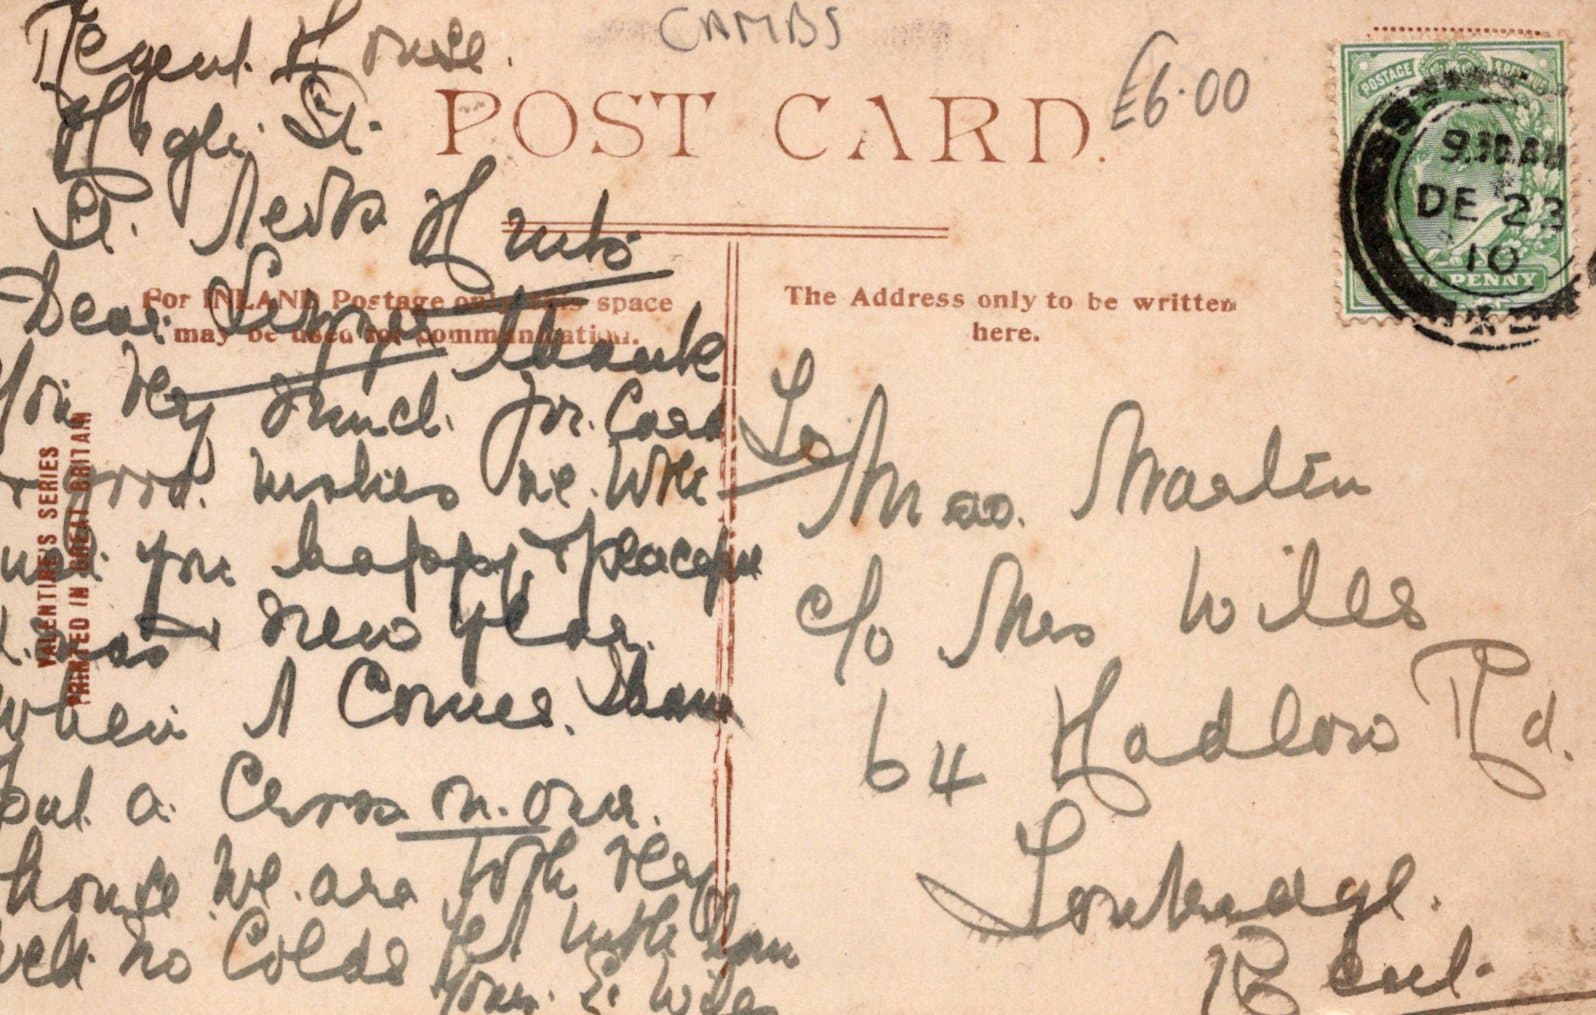 CAMBS
£6.00
POST CARD.
For INLAND Postage only this space
may be used for communication.
The Address only to be written
here.
VALENTINE'S SERIES
PRINTED IN GREAT BRITAIN
POSTAGE REVENUE
PENNY
9.30 AM
DE 23
10
Regent House.
St.
St. Neots Hunts
Dear thank
you very much for Card
& good wishes we both
wish you happy & peaceful
Xmas & New Year.
When I Come. Shall
put a Cross on our.
house We are both very
well no Colds yet with
Yours E. Wiles
To
Mrs. Martin
c/o Mrs Wiles
64 Hadlow Rd.
Tonbridge.
Kent.